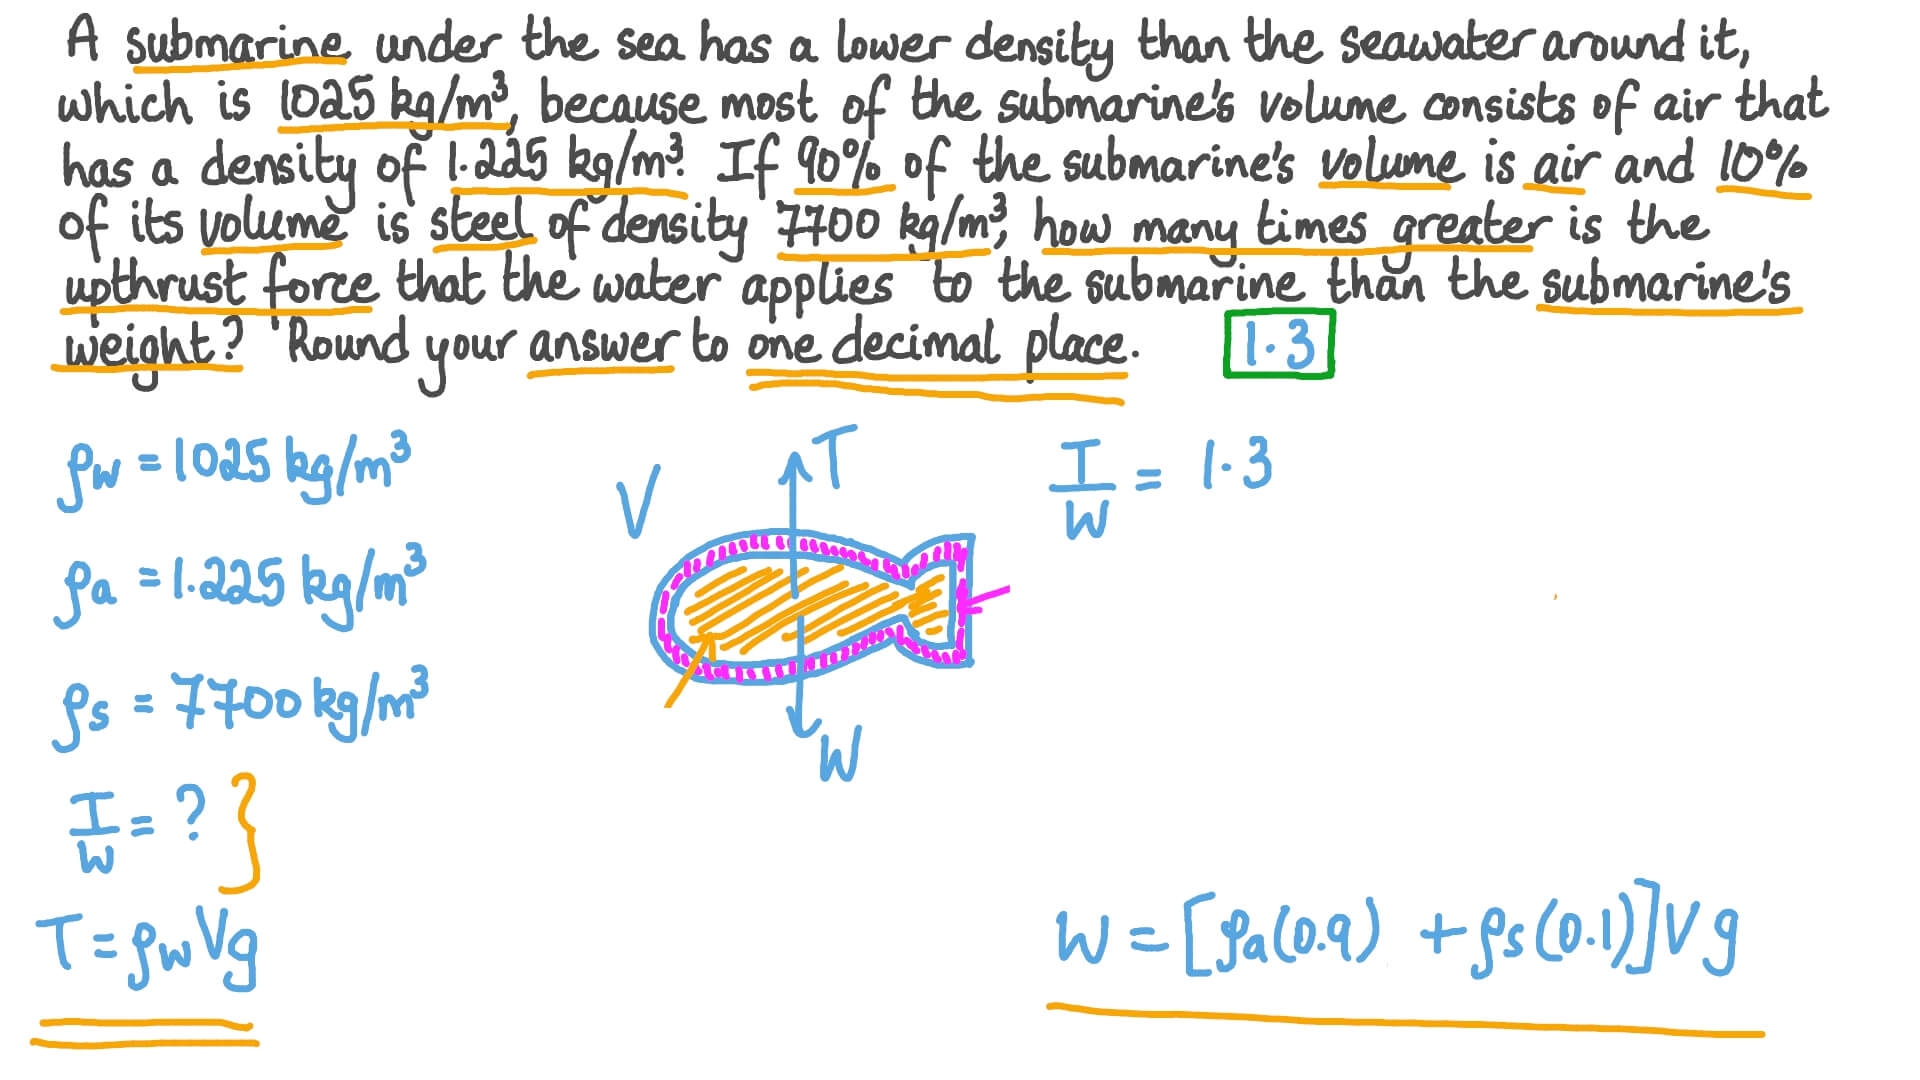 A submarine under the sea has a lower density than the seawater around it,
which is 1025 kg/m³, because most of the submarine's volume consists of air that
has a density of 1.225 kg/m³. If 90% of the submarine's volume is air and 10%
of its volume is steel of density 7700 kg/m³, how many times greater is the
upthrust force that the water applies to the submarine than the submarine's
weight? Round your answer to one decimal place. 1.3
ρw = 1025 kg/m³
ρa = 1.225 kg/m³
ρs = 7700 kg/m³
T/W = ?
T = ρw Vg
V
T
W
T/W = 1.3
W = [ρa(0.9) + ρs(0.1)]Vg